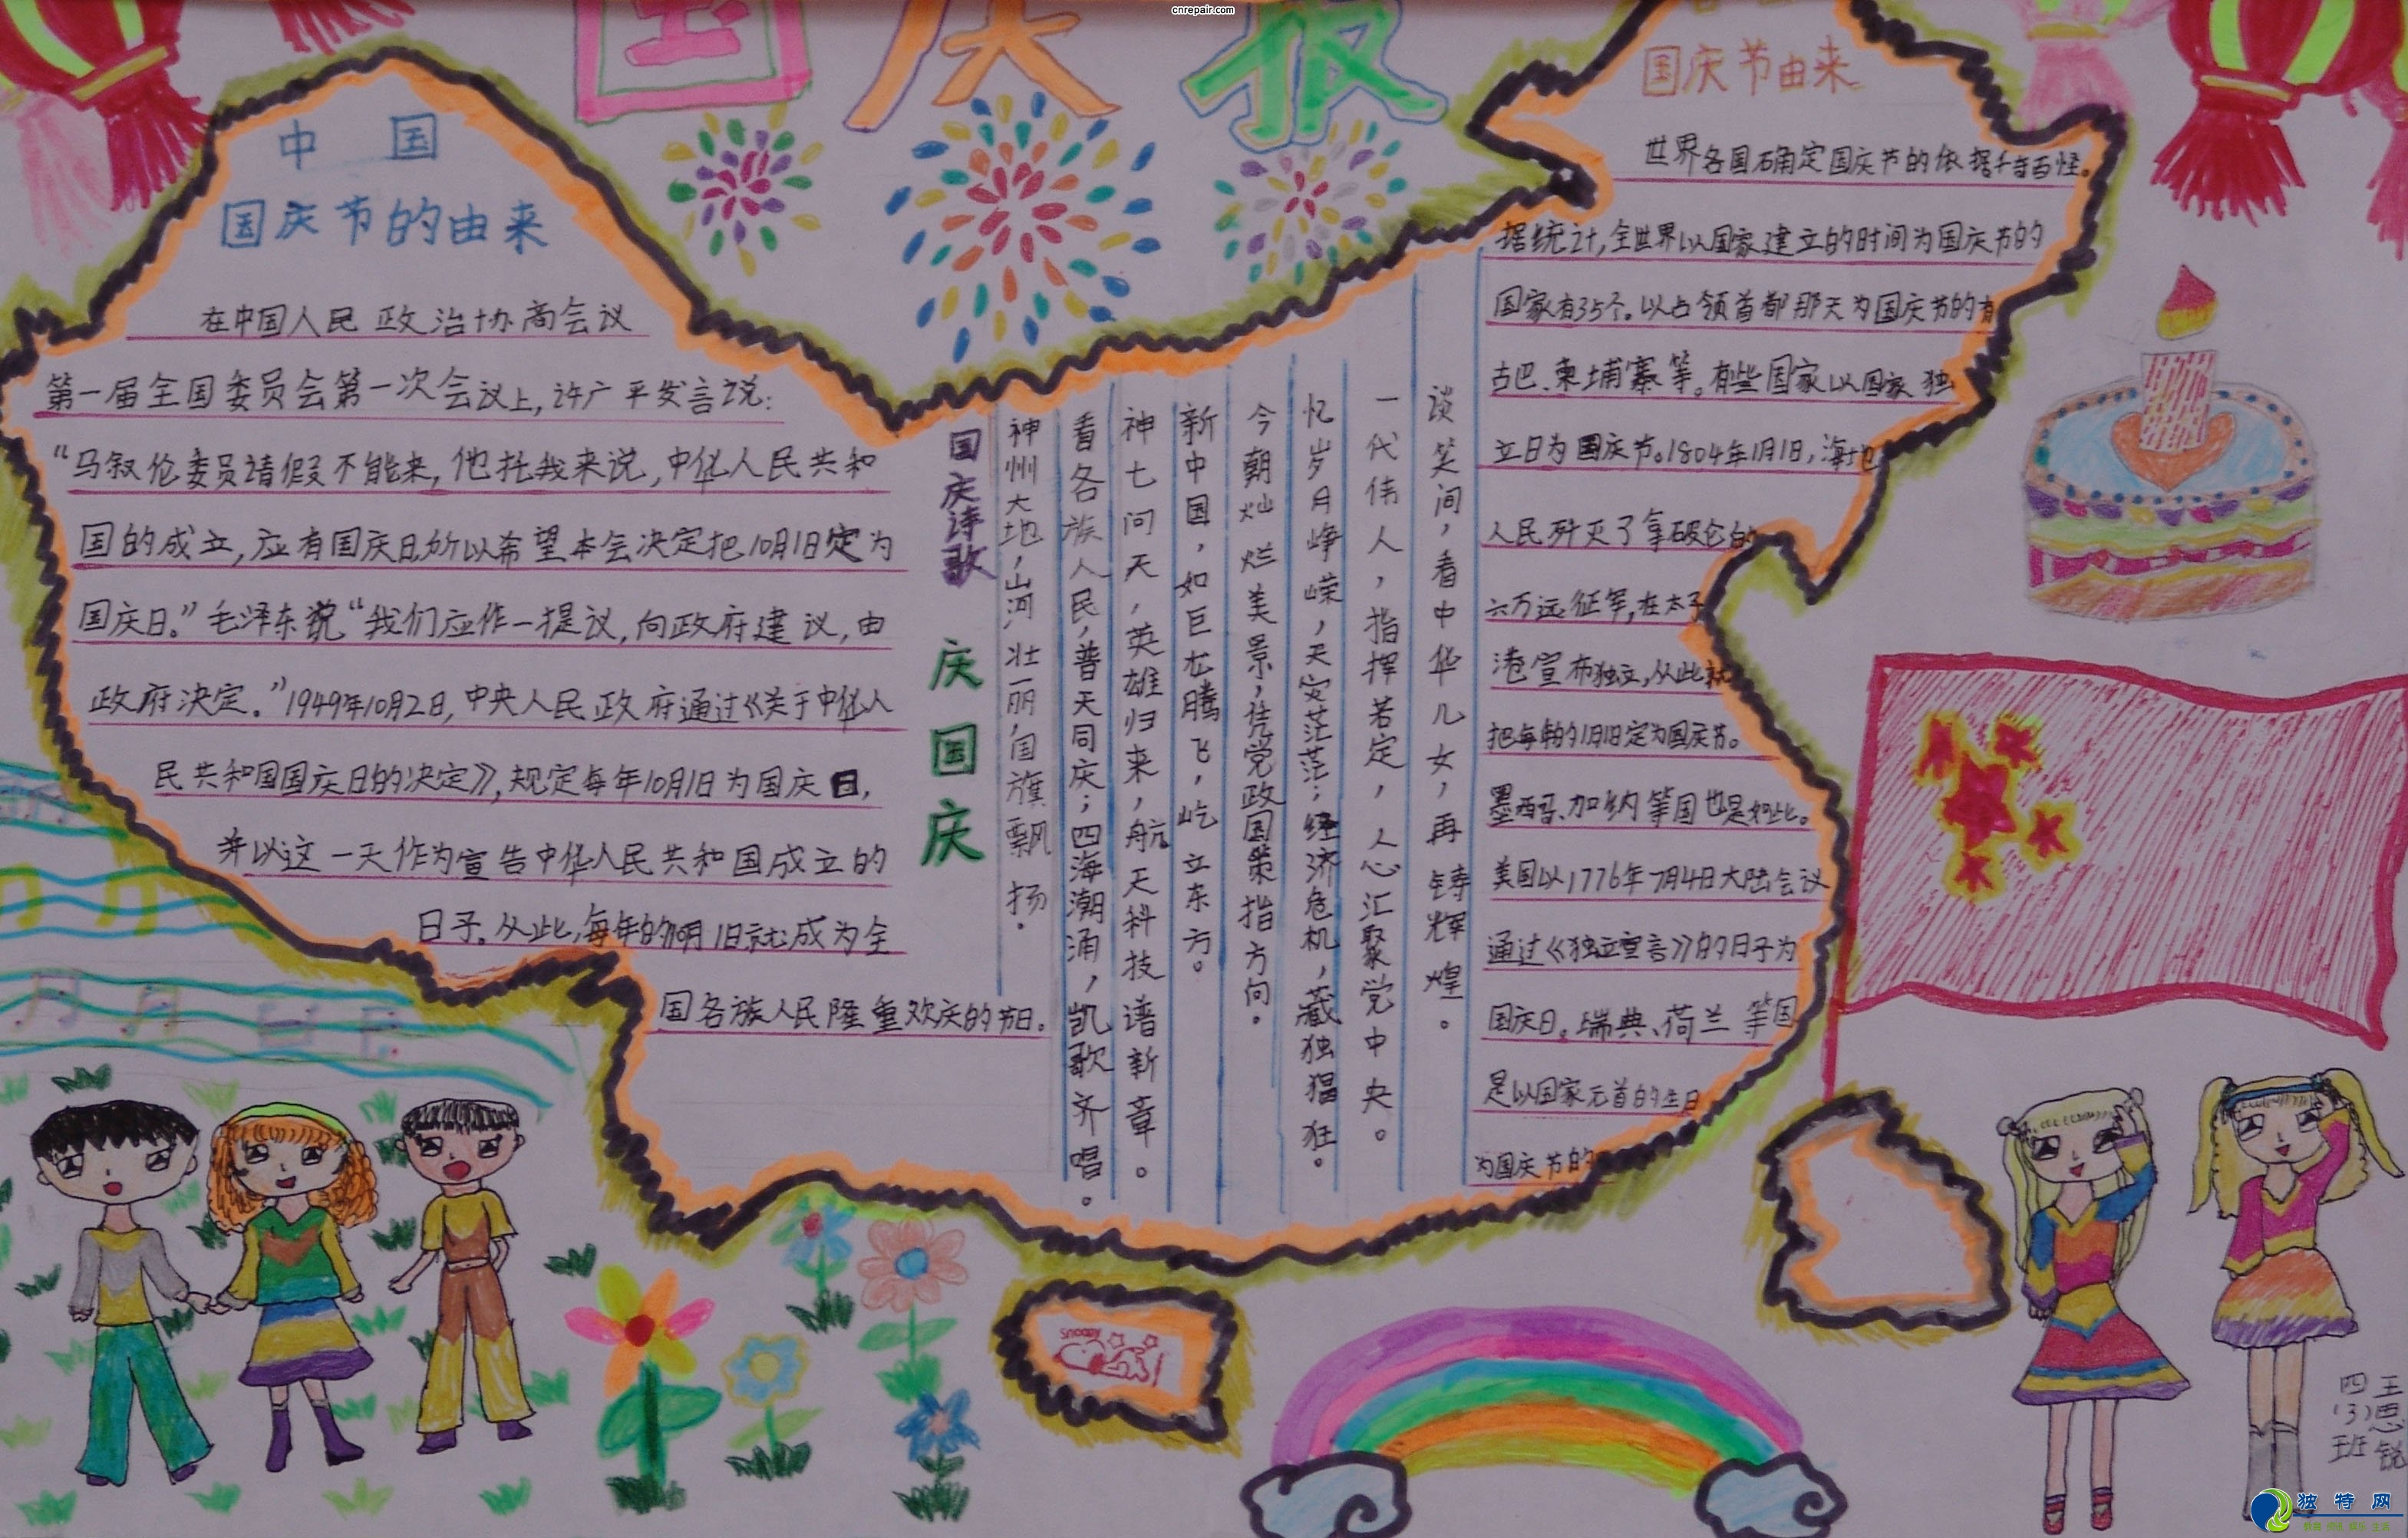 cnrepair.com
国庆报
中国
国庆节的由来
在中国人民政治协商会议
第一届全国委员会第一次会议上,许广平发言说:
“马叙伦委员请假不能来,他托我来说,中华人民共和
国的成立,应有国庆日,所以希望本会决定把10月1日定为
国庆日。”毛泽东说“我们应作一提议,向政府建议,由
政府决定。”1949年10月2日,中央人民政府通过《关于中华人
民共和国国庆日的决定》,规定每年10月1日为国庆日,
并以这一天作为宣告中华人民共和国成立的
日子。从此,每年的10月1日就成为全
国各族人民隆重欢庆的节日。
国庆诗歌
庆国庆
神州大地,山河壮丽,国旗飘扬.
看各族人民,普天同庆;四海潮涌,凯歌齐唱。
神七问天,英雄归来,航天科技谱新章。
新中国,如巨龙腾飞,屹立东方。
今朝灿烂美景,凭党政国策指方向.
忆岁月峥嵘,天灾茫茫;经济危机,藏独猖狂.
一代伟人,指挥若定,人心汇聚党中央。
谈笑间,看中华儿女,再铸辉煌.
国庆节由来
世界各国确定国庆节的依据千奇百怪。
据统计,全世界以国家建立的时间为国庆节的
国家有35个。以占领首都那天为国庆节的有
古巴、柬埔寨等。有些国家以国家独
立日为国庆节。1804年1月1日,海地
人民歼灭了拿破伦的
六万远征军,在太子
港宣布独立,从此就
把每年的1月1日定为国庆节。
墨西哥、加纳等国也是如此。
美国以1776年7月4日大陆会议
通过《独立宣言》的日子为
国庆日。瑞典、荷兰等国
是以国家元首的生日
为国庆节的
Snoopy
四(3)班
王思锐
独特网